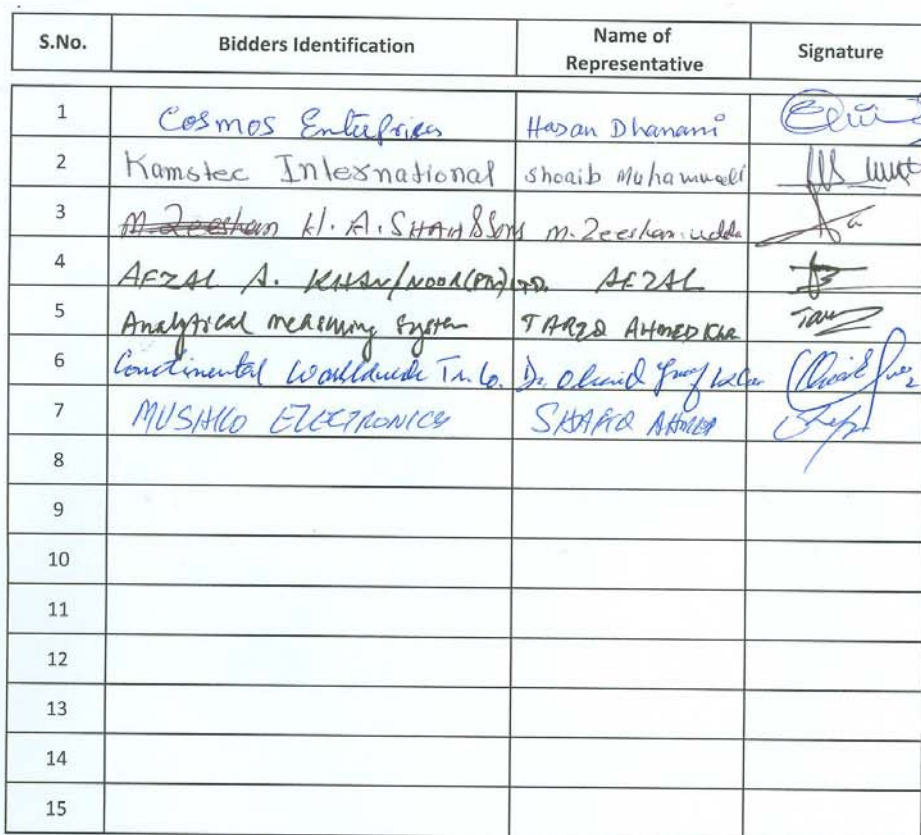 S.No. Bidders Identification Name of Representative Signature
1 Cosmos Enterprises Hasan Dhanani
2 Kamstec International Shoaib Muhammad
3 M. Zeeshan H. A. SHAH & Sons M. Zeeshan
4 AFZAL A. KHAN/NOOR(PVT) LTD. AFZAL
5 Analytical measuring system TARIQ AHMED
6 Continental Worldwide Tr. Co. Dr.
7 MUSHKO ELECTRONICS SHAFIQ AHMED
8
9
10
11
12
13
14
15